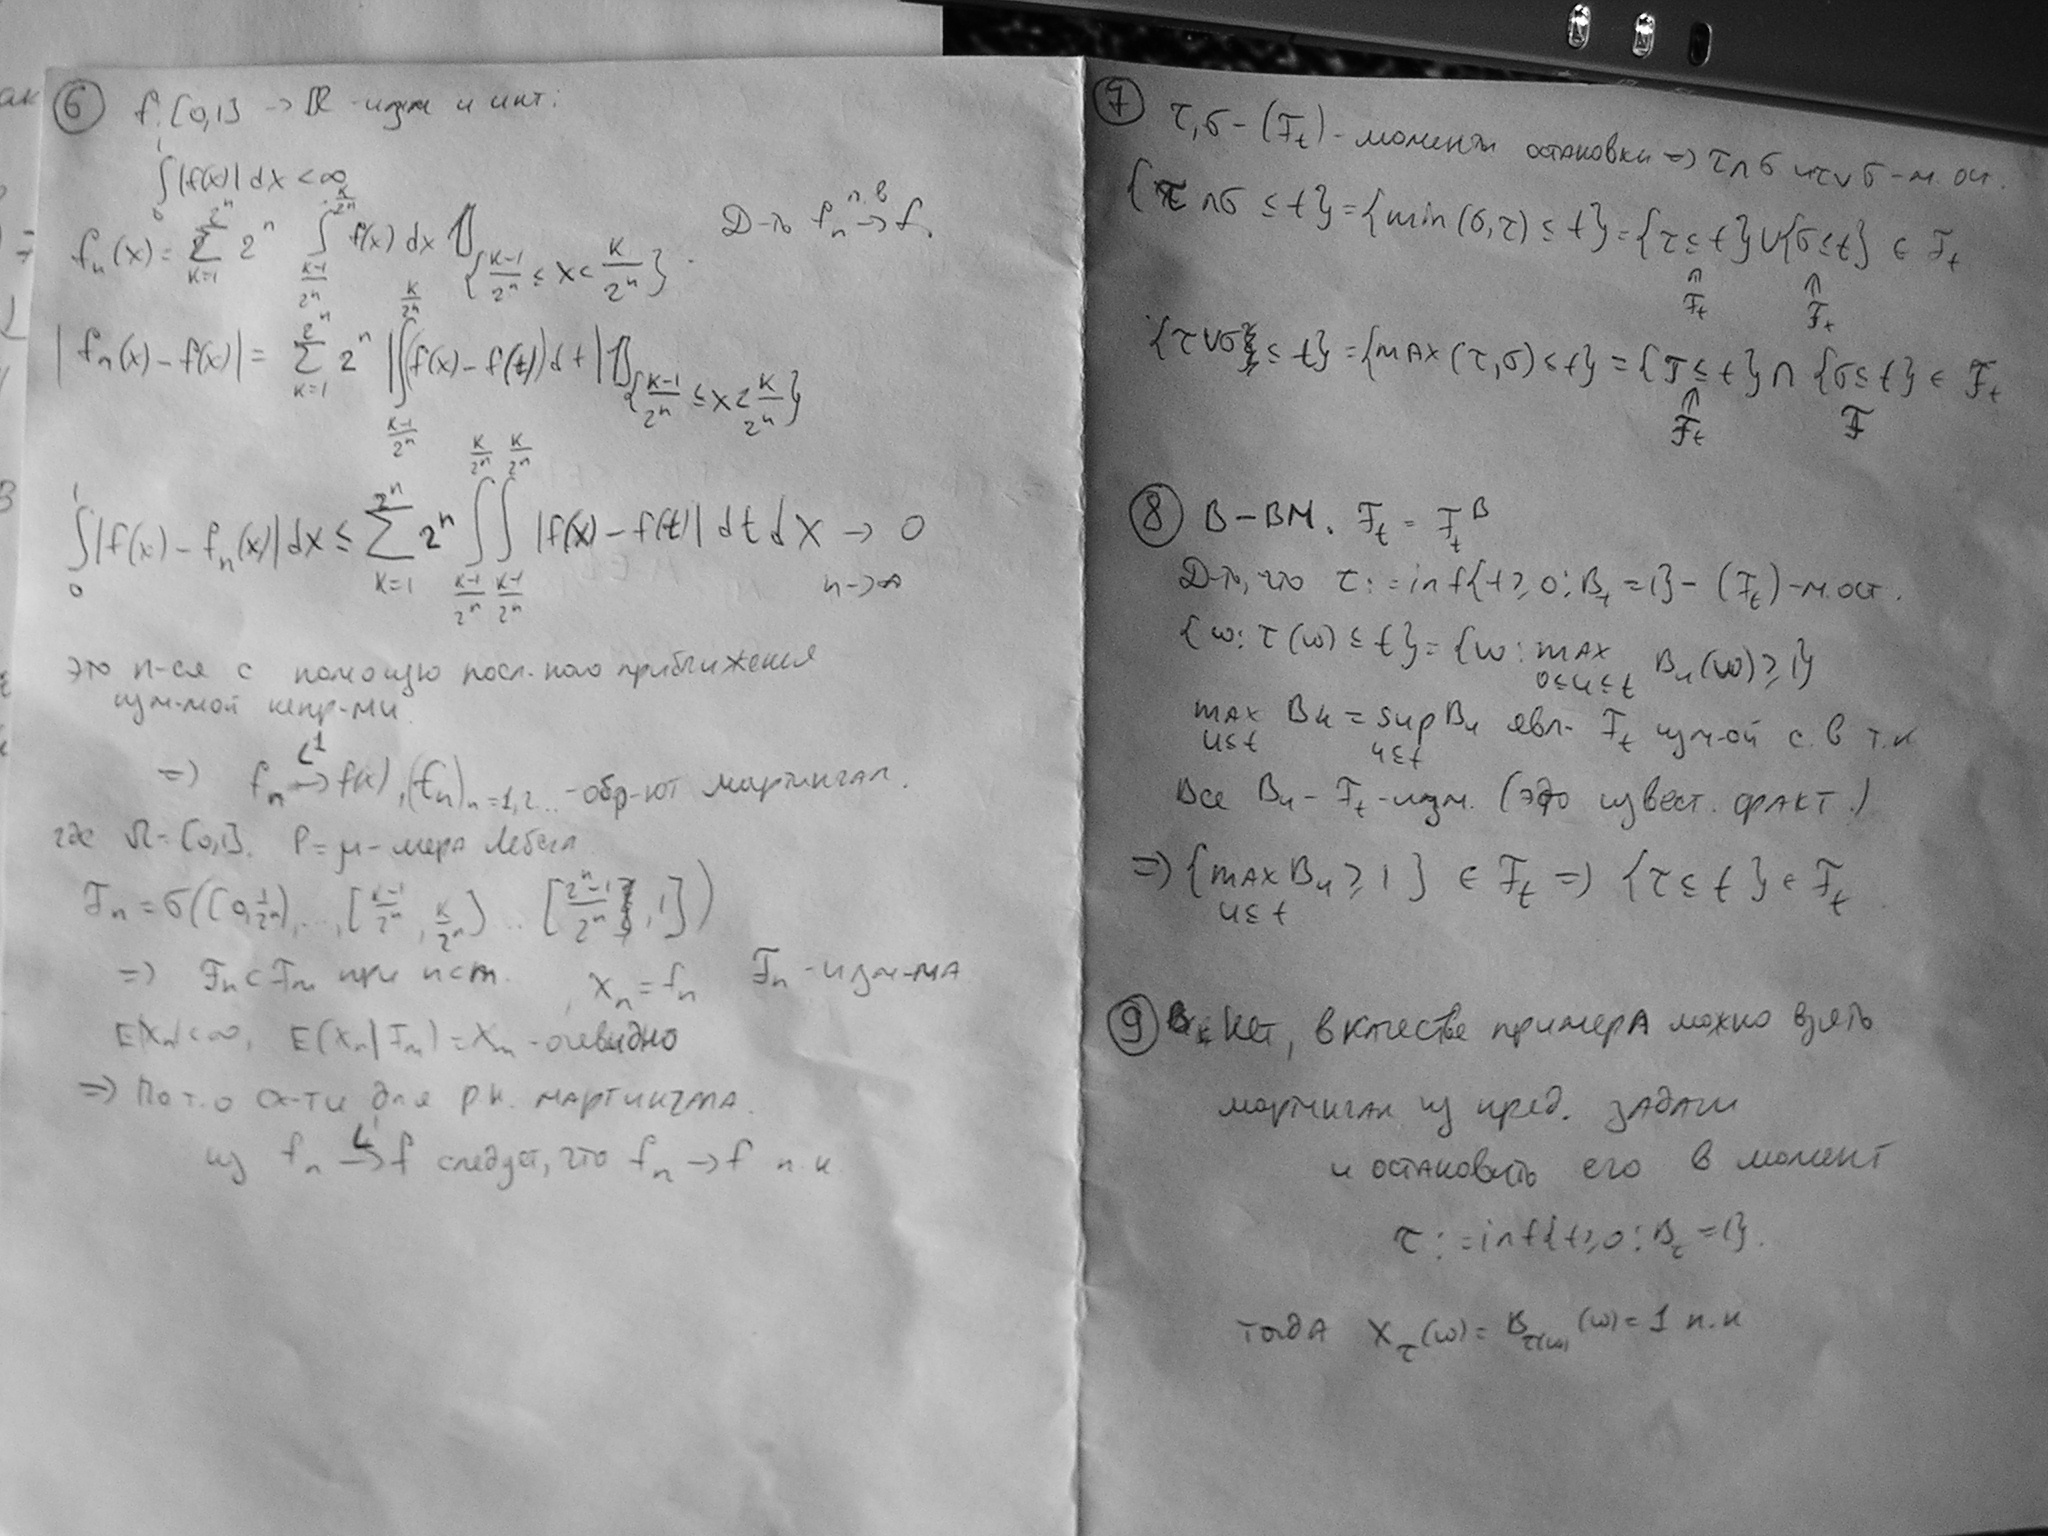 ⑥ f: [0,1] → ℝ - изм и инт:
∫_0^1 |f(x)| dx < ∞
f_n(x) = Σ_{k=1}^{2^n} 2^n ∫_{(k-1)/2^n}^{k/2^n} f(x) dx 1_{{(k-1)/2^n ≤ x < k/2^n}}. Д-ть f_n →^{п.в} f.
|f_n(x) - f(x)| = Σ_{k=1}^{2^n} 2^n |∫_{(k-1)/2^n}^{k/2^n} (f(x) - f(t)) dt| 1_{{(k-1)/2^n ≤ x < k/2^n}}
∫_0^1 |f(x) - f_n(x)| dx ≤ Σ_{k=1}^{2^n} 2^n ∫_{(k-1)/2^n}^{k/2^n} ∫_{(k-1)/2^n}^{k/2^n} |f(x) - f(t)| dt dx → 0 n→∞
это п-ся с помощью посл-ного приближения
изм-мой непр-ми.
⇒ f_n →^{L^1} f(x), (f_n)_{n=1,2...} - обр-ют мартингал.
где Ω = [0,1]. P = μ - мера Лебега
F_n = σ([0, 1/2^n), ..., [(k-1)/2^n, k/2^n) ... [(2^n-1)/2^n, 1])
⇒ F_n ⊂ F_m при n<m. , X_n = f_n F_n - изм-ма
E|X_n| < ∞, E(X_n | F_m) = X_m - очевидно
⇒ По т. о сх-ти для р.и. мартингала.
из f_n →^{L^1} f следует, что f_n → f п.н.
⑦ τ, σ - (F_t) - моменты остановки ⇒ τ∧σ и τ∨σ - м. ост.
{τ∧σ ≤ t} = {min(σ,τ) ≤ t} = {τ ≤ t} ∪ {σ ≤ t} ∈ F_t
∩ F_t ∩ F_t
{τ∨σ ≤ t} = {max(τ,σ) ≤ t} = {τ ≤ t} ∩ {σ ≤ t} ∈ F_t
∩ F_t F
⑧ B - ВМ. F_t = F_t^B
Д-ть, что τ := inf{t ≥ 0 : B_t = 1} - (F_t) - м. ост.
{ω : τ(ω) ≤ t} = {ω : max_{0≤u≤t} B_u(ω) ≥ 1}
max_{u≤t} B_u = sup_{u≤t} B_u явл- F_t изм-ой с.в т.к
все B_u - F_t - изм. (это извест. факт.)
⇒ {max_{u≤t} B_u ≥ 1} ∈ F_t ⇒ {τ ≤ t} ∈ F_t
⑨ Нет, в качестве примера можно взять
мартингал из пред. задачи
и остановить его в момент
τ := inf{t ≥ 0 : B_τ = 1}.
тогда X_τ(ω) = B_{τ(ω)}(ω) = 1 п.н